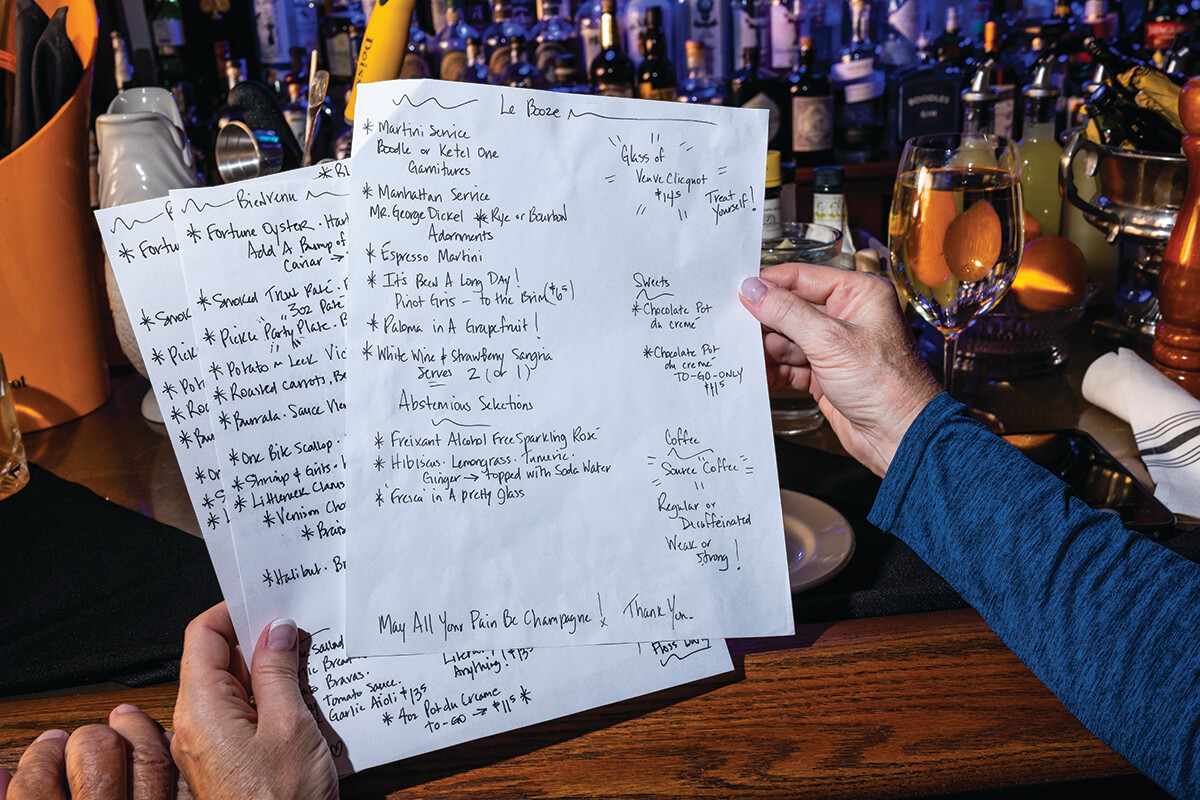 Le Booze
* Martini Service
Boodle or Ketel One
Garnitures
* Manhattan Service
Mr. George Dickel * Rye or Bourbon
Adornments
* Espresso Martini
* It's Been A Long Day!
Pinot Gris – to the Brim ($6.5)
* Paloma in A Grapefruit!
* White Wine & Strawberry Sangria
Serves 2 (or 1)
Abstemious Selections
* Freixant Alcohol Free Sparkling Rosé
* Hibiscus. Lemongrass. Tumeric.
Ginger → topped with Soda Water
* "Fresca" in A pretty glass
Glass of
Veuve Clicquot
$14.5
Treat
Yourself!
Sweets
* Chocolate Pot
du cremé
* Chocolate Pot
du cremé
TO-GO-ONLY
$11.5
Coffee
Source Coffee
Regular or
Decaffeinated
Weak or
Strong!
May All Your Pain Be Champagne! Thank You.
Bienvenu
* Fortune Oyster.
Add A Bump of
Caviar →
* Smoked Trout Paté.
3oz Paté
* Pickle "Party" Plate.
* Potato & Leek
* Roasted carrots.
* Burrata. Sauce
* One Bite Scallop.
* Shrimp & Girls.
* Littleneck Clams
* Venison
* Halibut.
Bravas.
Tomato Sauce.
Garlic Aioli $13.5
Anything! $13.5
* 4oz Pot du Creme
TO-GO → $11.5 *
BOODLES
GIN